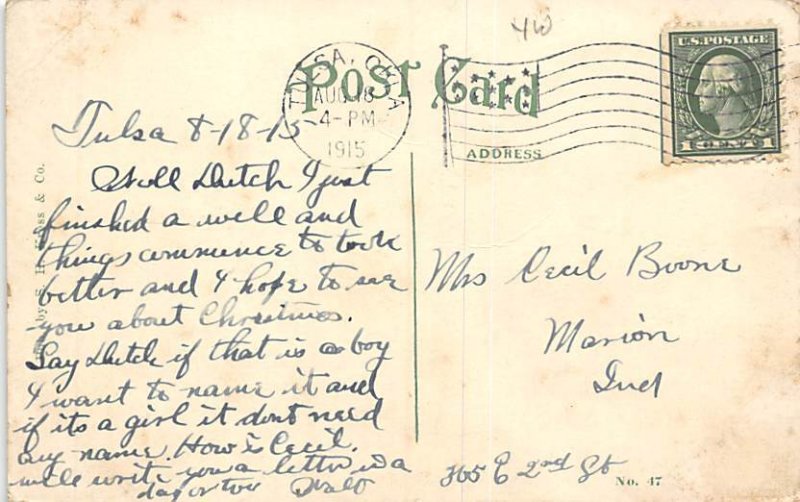 4W
Post Card
ADDRESS
U.S. POSTAGE
1 CENT 1
TULSA, OKLA
AUG 18
4-PM
1915
Tulsa 8-18-15
Well Dutch I just
finished a well and
things commence to look
better and I hope to see
you about Christmas.
Say Dutch if that is a boy
I want to name it and
if its a girl it dont need
any name. How is Cecil.
will write you a letter in a
day or two Walt
Mrs Cecil Boone
Marion
Ind
365 E 2nd St
No. 47
by & Co.